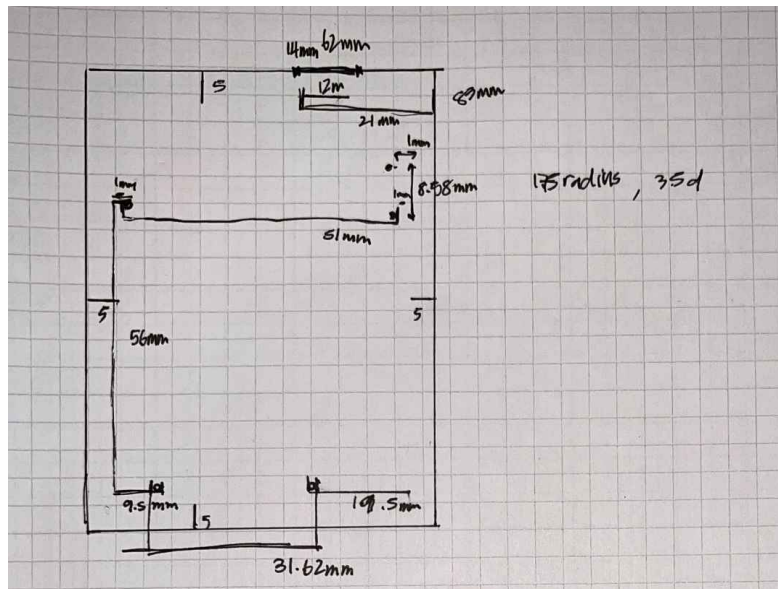 14mm 62mm
5
12m
89mm
21mm
1mm
8.58mm
175 radius, 35d
1mm
1mm
51mm
5
5
56mm
9.5mm
19.5mm
5
31.62mm